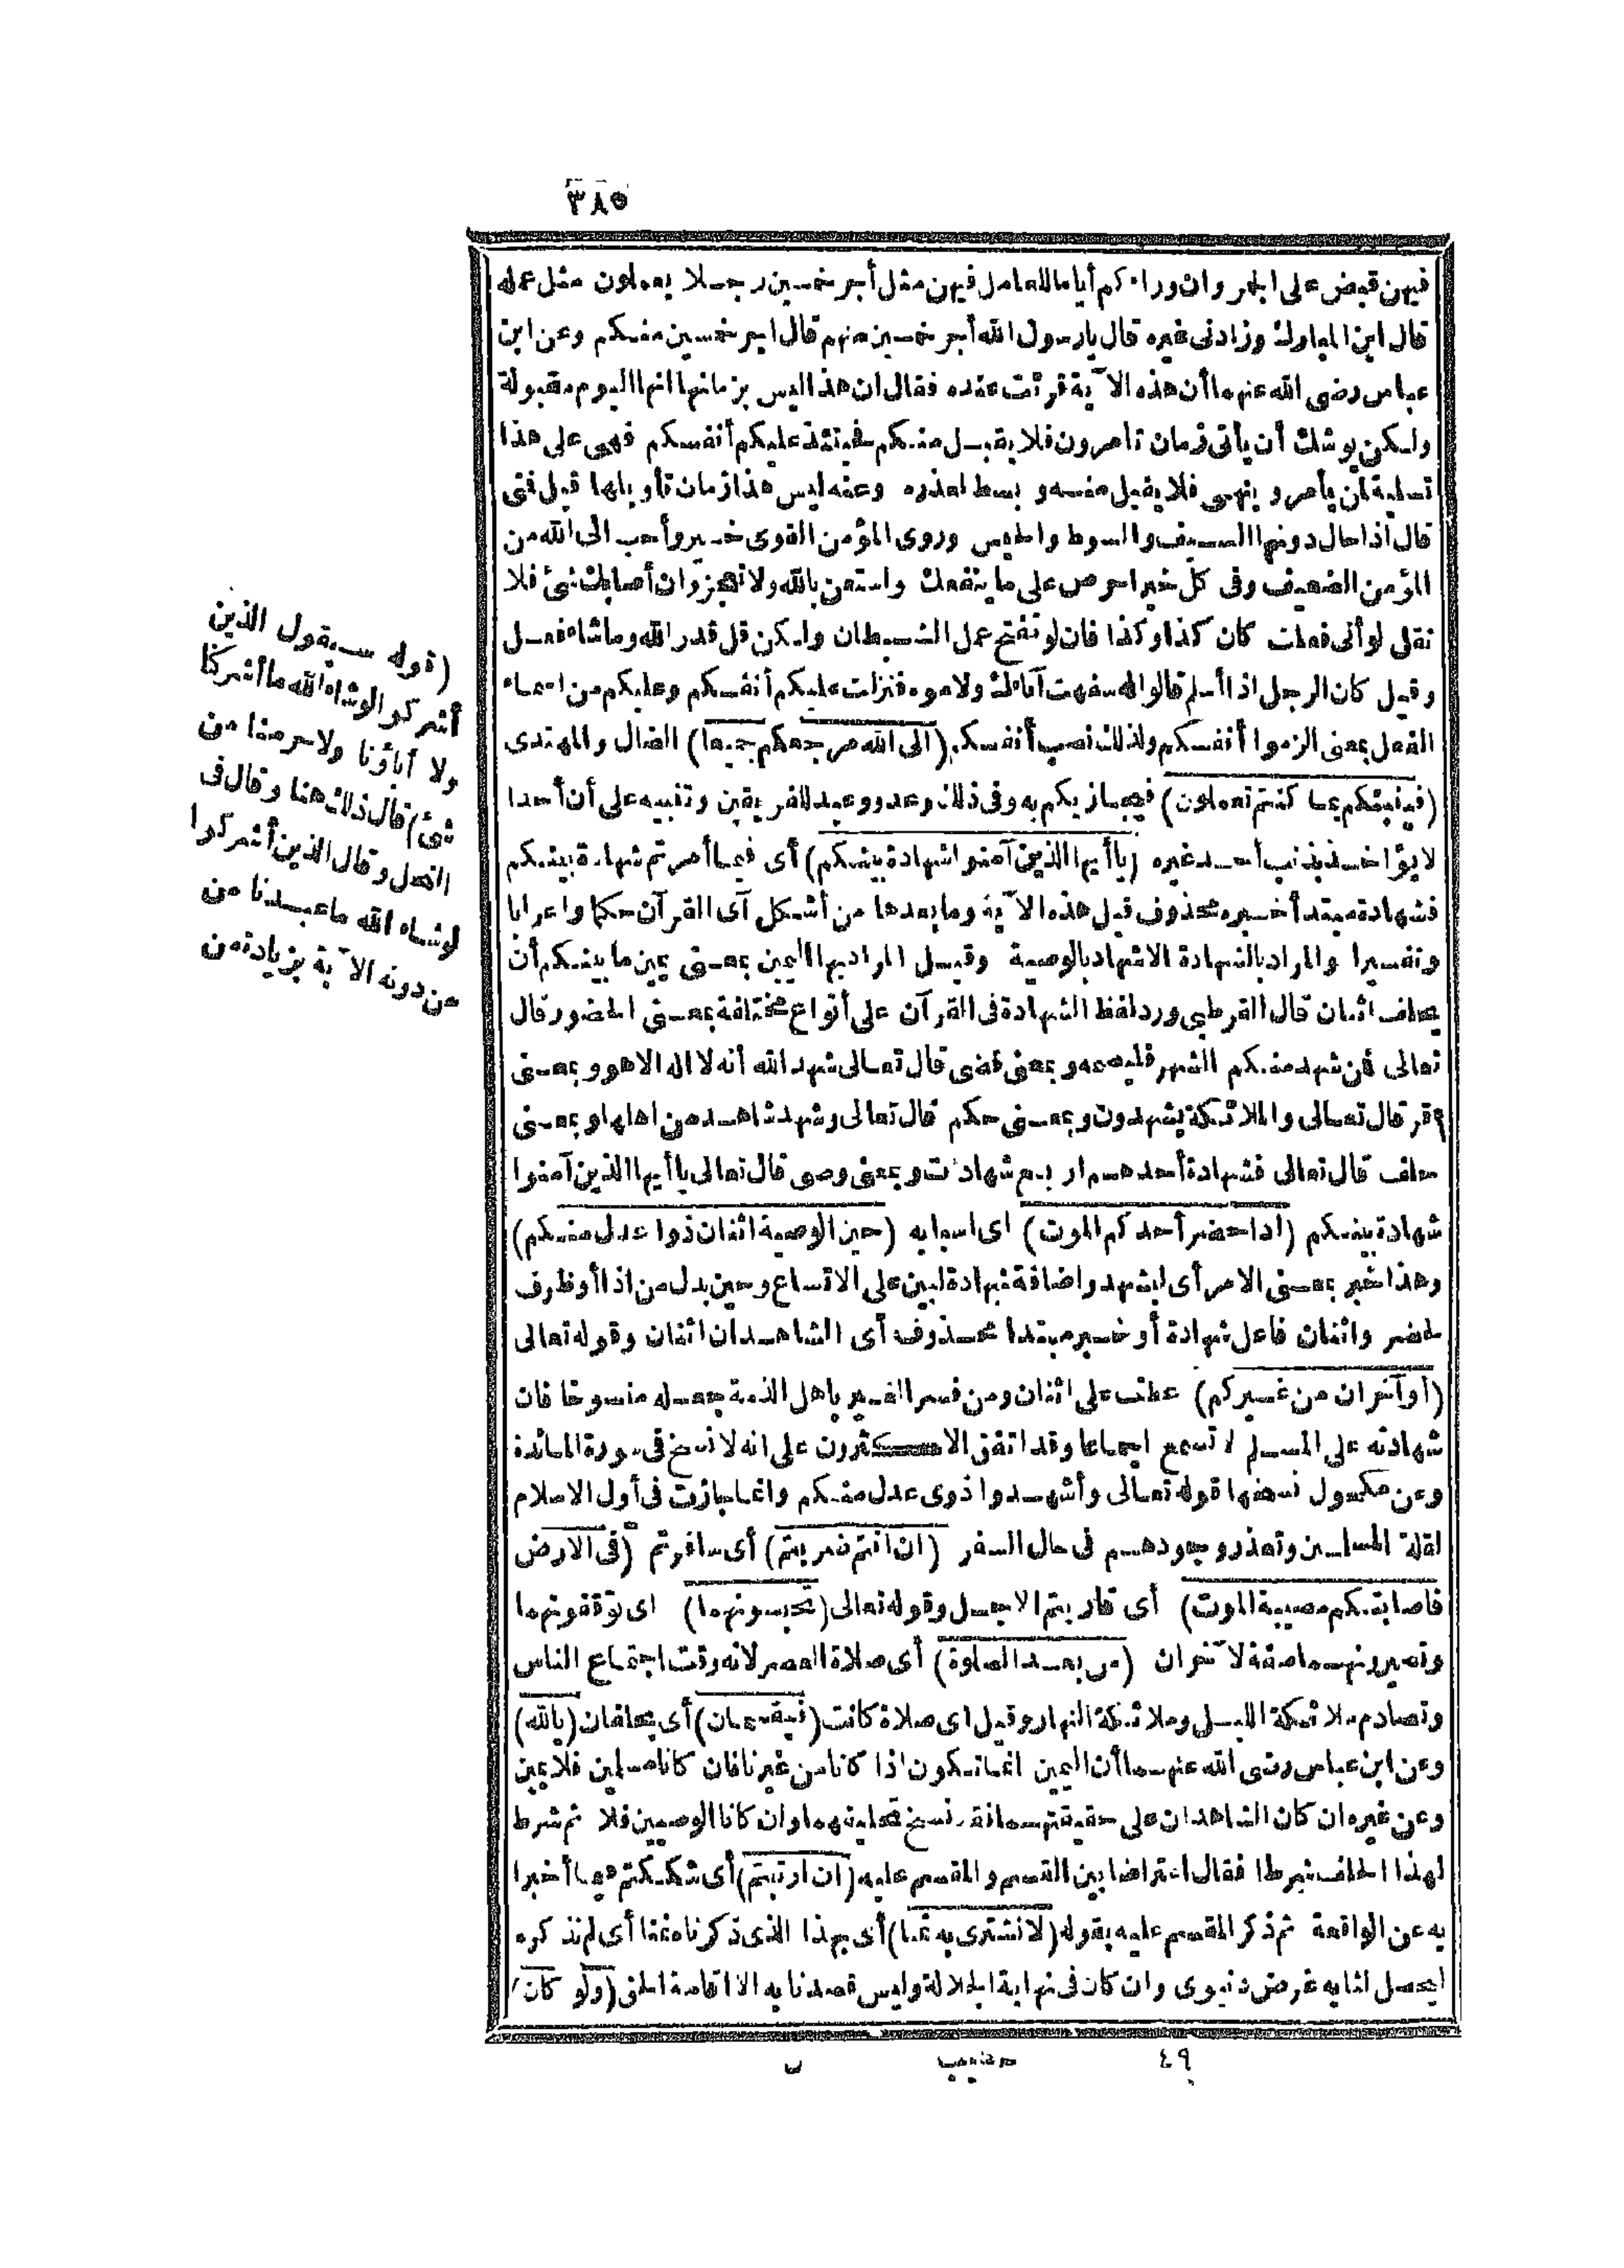 ٣٨٥
فيهن قبض على الجمر وان وراءكم أياما للعامل فيهن مثل أجر خمسين رجلا يعملون مثل عمله
قال ابن المبارك وزادنى غيره قال يارسول الله أجر خمسين منهم قال اجر خمسين منكم وعن ابن
عباس رضى الله عنهما أن هذه الآية قرئت عنده فقال ان هذا ليس بزمانها انها اليوم مقبولة
ولكن يوشك أن يأتى زمان تأمرون فلا يقبل منكم فحينئذ عليكم أنفسكم فهى على هذا
تسلية لمن يأمر وينهى فلا يقبل منه وبسط لعذره وعنه ليس هذا زمان تأويلها قيل فمتى
قال اذا حال دونها السيف والسوط والحبس وروى المؤمن القوى خير وأحب الى الله من
المؤمن الضعيف وفى كل خير احرص على ما ينفعك واستعن بالله ولا تعجز وان أصابك شئ فلا
تقل لو أنى فعلت كان كذا وكذا فان لو تفتح عمل الشيطان ولكن قل قدر الله وما شاء فعل
وقيل كان الرجل اذا أسلم قالوا له سفهت آباءك ولاموه فنزلت عليكم أنفسكم وعليكم من اسماء
الفعل بمعنى الزموا أنفسكم ولذلك نصب أنفسكم (الى الله مرجعكم جميعا) الضال والمهتدى
(فينبئكم بما كنتم تعملون) فيجازيكم به وفى ذلك وعد ووعيد للفريقين وتنبيه على أن أحدا
لا يؤاخذ بذنب أحد غيره (ياأيها الذين آمنوا شهادة بينكم) أى فيما أمرتم شهادة بينكم
فشهادة مبتدأ خبره محذوف قيل هذه الآية وما بعدها من أشكل آى القرآن حكما واعرابا
وتفسيرا والمراد بالشهادة الاشهاد بالوصية وقيل المراد بها اليمين بمعنى يمين ما بينكم أن
يحلف اثنان قال القرطبى ورد لفظ الشهادة فى القرآن على أنواع مختلفة بمعنى الحضور قال
تعالى فمن شهد منكم الشهر فليصمه وبمعنى قضى قال تعالى شهد الله أنه لا اله الا هو وبمعنى
أقر قال تعالى والملائكة يشهدون وبمعنى حكم قال تعالى وشهد شاهد من اهلها وبمعنى
حلف قال تعالى فشهادة أحدهم اربع شهادات وبمعنى وصى قال تعالى ياأيها الذين آمنوا
شهادة بينكم (اذا حضر أحدكم الموت) اى اسبابه (حين الوصية اثنان ذوا عدل منكم)
وهذا خبر بمعنى الامر أى ليشهد واضافة شهادة لبين على الاتساع وحين بدل من اذا أو ظرف
لحضر واثنان فاعل شهادة أو خبر مبتدا محذوف أى الشاهدان اثنان وقوله تعالى
(أو آخران من غيركم) عطف على اثنان ومن فسر الغير باهل الذمة جعله منسوخا فان
شهادته على المسلم لا تسمع اجماعا وقد اتفق الاكثرون على انه لا نسخ فى سورة المائدة
وعن مكحول نسخها قوله تعالى وأشهدوا ذوى عدل منكم وانما جازت فى أول الاسلام
لقلة المسلمين وتعذر وجودهم فى حال السفر (ان أنتم ضربتم) أى سافرتم (فى الارض
فاصابتكم مصيبة الموت) أى قاربتم الاجل وقوله تعالى (تحبسونهما) اى توقفونهما
وتصبرونهما صفة لآخران (من بعد الصلوة) أى صلاة العصر لانه وقت اجتماع الناس
وتصادم ملائكة الليل وملائكة النهار وقيل اى صلاة كانت (فيقسمان) أى يحلفان (بالله)
وعن ابن عباس رضى الله عنهما أن اليمين انما تكون اذا كانا من غيرنا فان كانا مسلمين فلا يمين
وعن غيره ان كان الشاهدان على حقيقتهما فقد نسخ تحليفهما وان كانا الوصيين فلا ثم شرط
لهذا الحلف شرطا فقال اعتراضا بين القسم والمقسم عليه (ان ارتبتم) أى شككتم فيما أخبرا
به عن الواقعة ثم ذكر المقسم عليه بقوله (لا نشترى به ثمنا) أى بهذا الذى ذكرناه ثمنا أى لم نذكره
ليحصل لنا به غرض دنيوى وان كان فى نهاية الجلالة وليس قصدنا به الا اقامة الحق (ولو كان)
(قوله سيقول الذين
أشركوا لو شاء الله ما أشركنا
ولا آباؤنا ولا حرمنا من
شئ) قال ذلك هنا وقال فى
النحل وقال الذين أشركوا
لو شاء الله ما عبدنا من
من دونه الآية بزيادة من
٤٩ خطيب ل